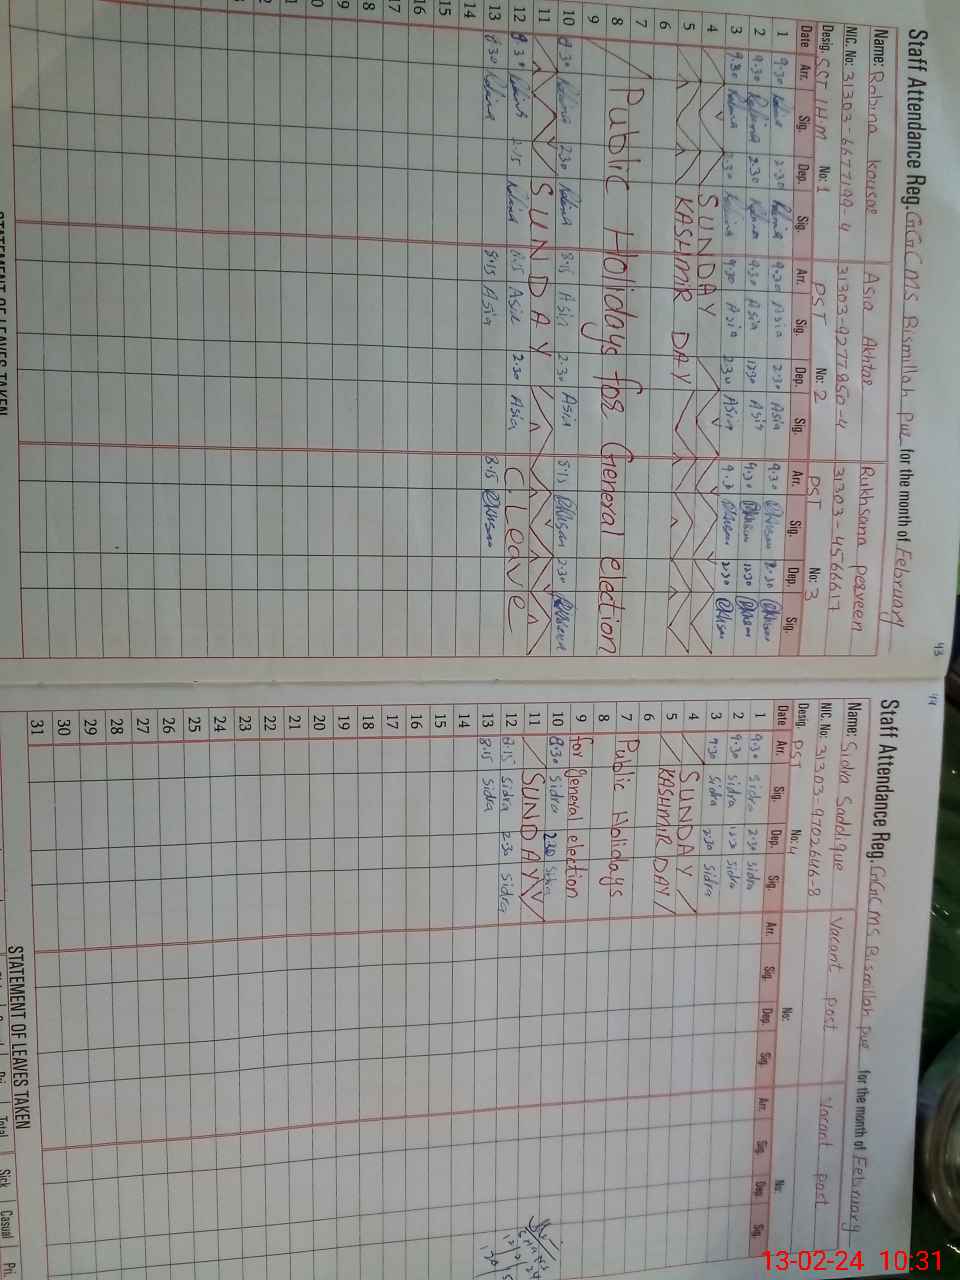 43
Staff Attendance Reg. GGCMS Bismillah Pur for the month of February
Name: Robina kousar Asia Akhtar Rukhsana perveen
NIC. No: 31303-6677199-4 31303-9277850-4 31303-4566617
Desig. SST IHM No: 1 PST No: 2 PST No: 3
Date Arr. Sig. Dep. Sig. Arr. Sig. Dep. Sig. Arr. Sig. Dep. Sig.
1 9.30 2.30 9.30 Asia 2.30 Asia 9.30
2 9.30 2.30 9.30 Asia 12.30 Asia 9.30 12.30
3 9.30 2.30 9.30 Asia 2.30 Asia 2.30
4 SUNDAY
5 KASHMIR DAY
6
7
8 Public Holidays for General election
9
10 8.30 2.30 8.15 Asia 2.30 Asia 8.15 2.30
11 SUNDAY
12 8.30 2.15 8.15 Asia 2.30 Asia C. Leave
13 8.30 8.15 Asia 8.15
14
15
16
17
18
19
44
Staff Attendance Reg. GGCMS Bismillah pur for the month of February
Name: Sidra Saddique Vacant post Vacant post
NIC. No: 31303-9702646-8
Desig. PST No: 4 No: No:
Date Arr. Sig. Dep. Sig. Arr. Sig. Dep. Sig. Arr. Sig. Dep. Sig.
1 9.30 Sidra 2.30 Sidra
2 9.30 Sidra Sidra
3 9.30 Sidra 2.30 Sidra
4 SUNDAY
5 KASHMIR DAY
6
7 Public Holidays
8
9 for general election
10 8.30 Sidra 2.30 Sidra
11 SUNDAY
12 8.15 Sidra 2.30 Sidra
13 8.15 Sidra
14
15
16
17
18
19
20
21
22
23
24
25
26
27
28
29
30
31
STATEMENT OF LEAVES TAKEN
Total Sick Casual Pri.
13-02-24 10:31